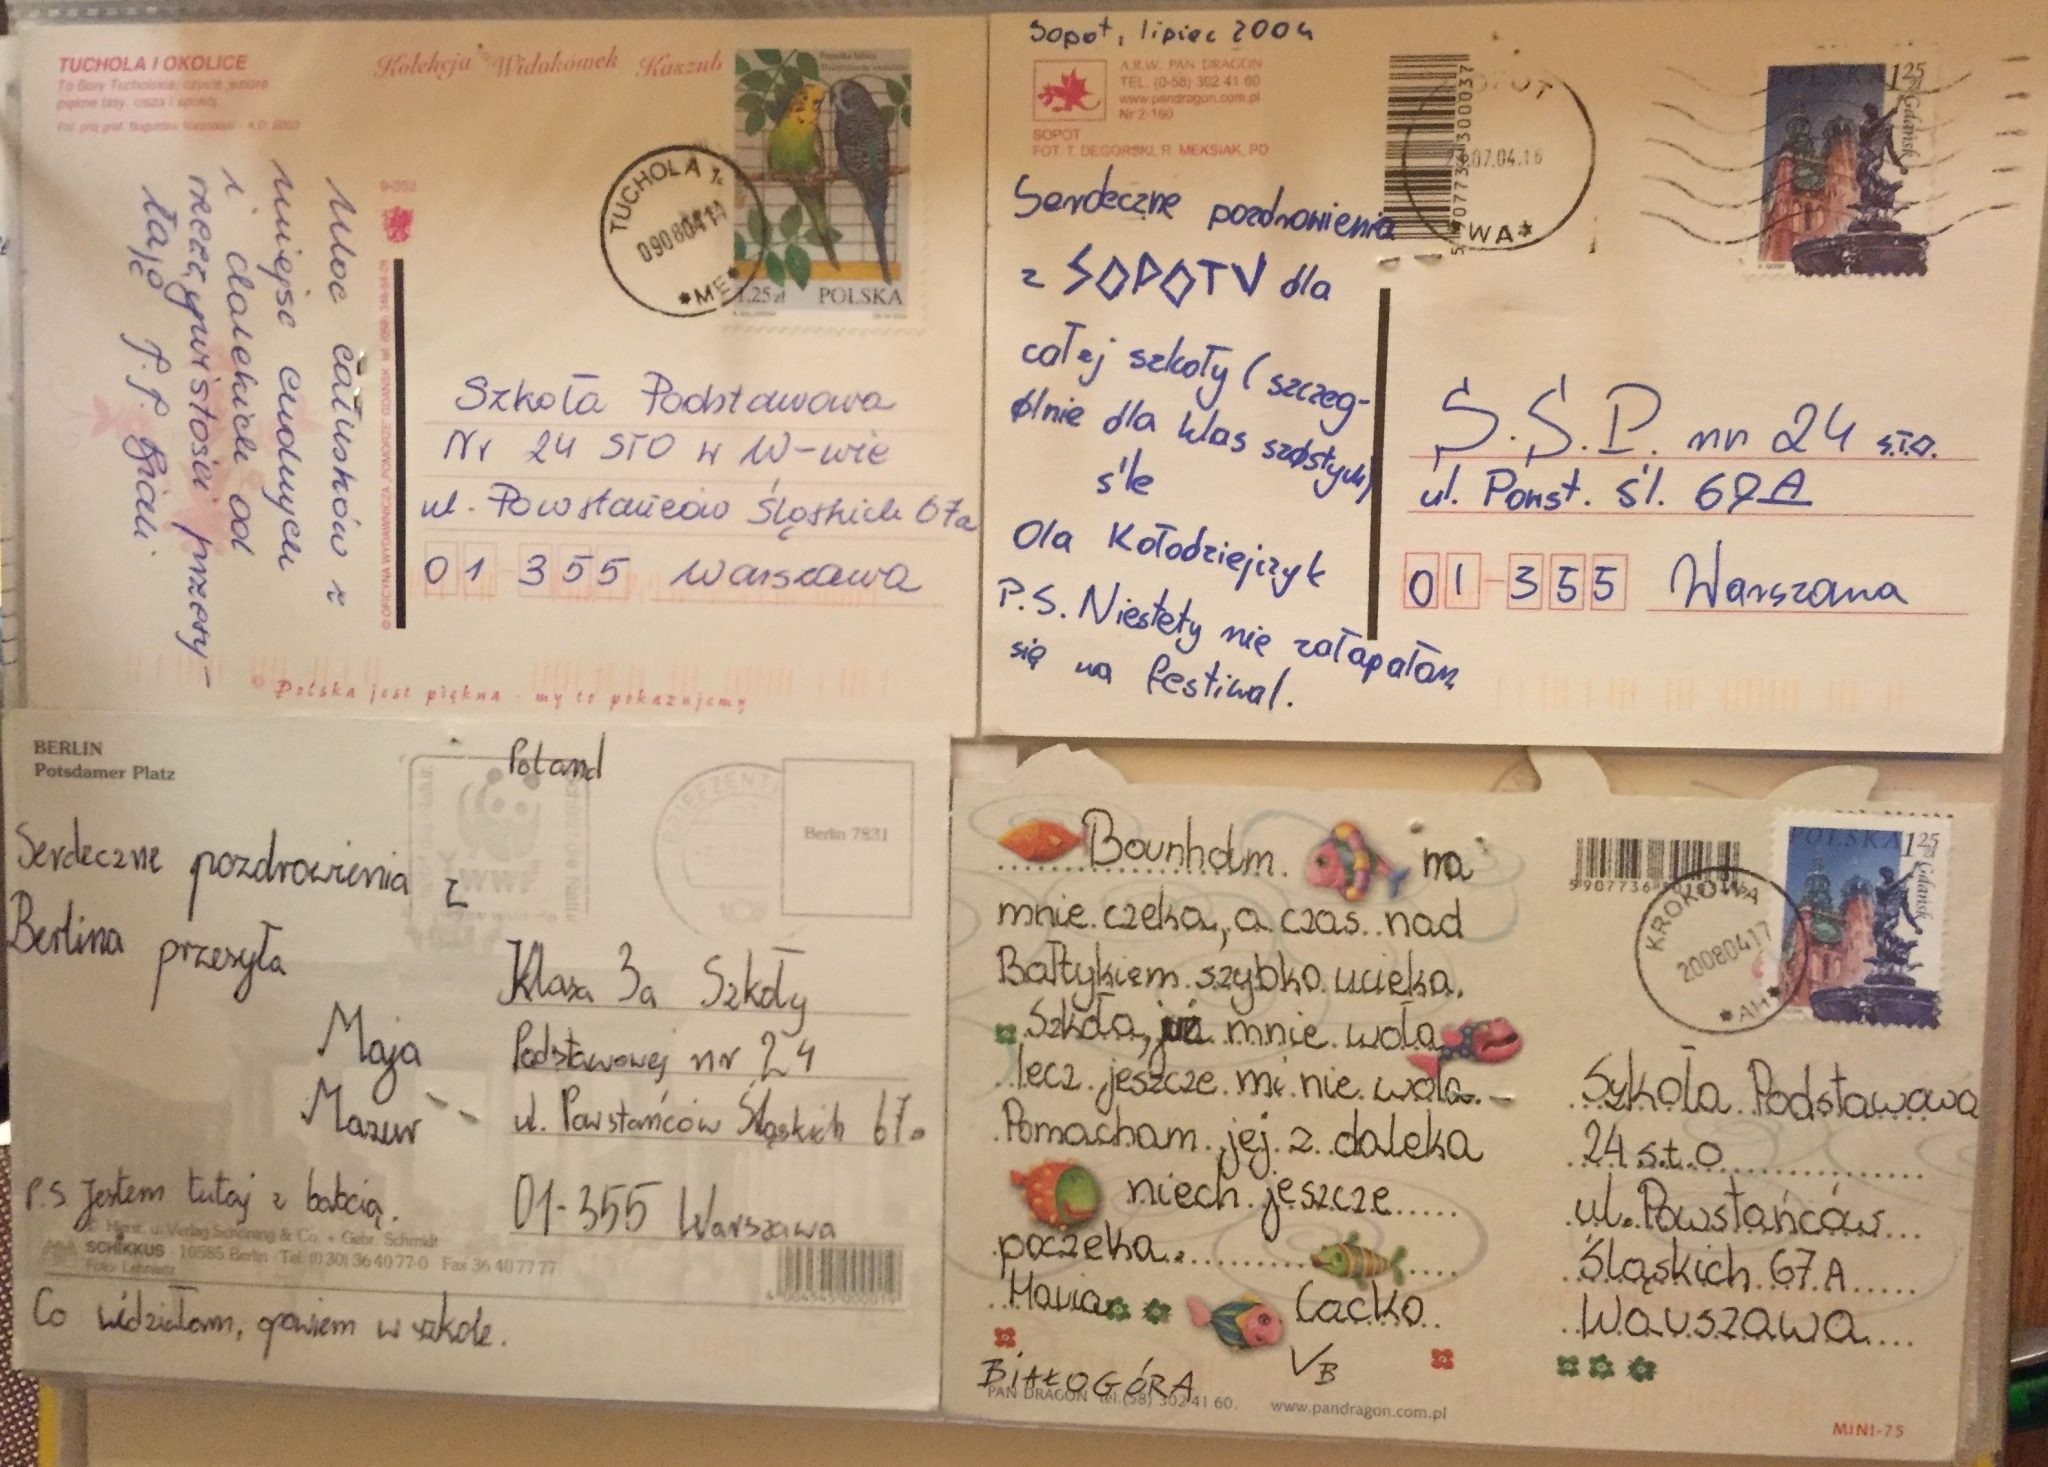 TUCHOLA I OKOLICE
To Bory Tucholskie, czyste jeziora,
piękne lasy, cisza i spokój.
Kolekcja Widokówek Kaszub
TUCHOLA 1
090804
*ME*
1.25 zł POLSKA
Moc całusków z
miejsc cudnych
i dalekich od
rzeczywistości przesy-
łają P.P.
Szkoła Podstawowa
Nr 24 STO w W-wie
ul. Powstańców Śląskich 67a
01 355 Warszawa
Polska jest piękna - my to pokazujemy
Sopot, lipiec 2004
A.R.W. PAN DRAGON
TEL. (0-58) 302 41 60
www.pandragon.com.pl
Nr 2-160
SOPOT
FOT. T. DEGÓRSKI, R. MEKSIAK, PD
5 907736 300037
07.04.16
*WA*
POLSKA 1 25
Gdańsk
Serdeczne pozdrowienia
z SOPOTU dla
całej szkoły (szczeg-
ólnie dla klas szóstych)
śle
Ola Kołodziejczyk
P.S. Niestety nie załapałam
się na festiwal.
S.S.P. nr 24 S.T.O.
ul. Powst. Śl. 67A
01-355 Warszawa
BERLIN
Potsdamer Platz
Poland
WWF
BRIEFZENT
Berlin 7831
Serdeczne pozdrowienia z
Berlina przesyła
Maja
Mazur
P.S Jestem tutaj z babcią.
Co widziałam, opowiem w szkole.
Klasa 3a Szkoły
Podstawowej nr 24
ul. Powstańców Śląskich 67a
01-355 Warszawa
Verlag Schöning & Co. + Gebr. Schmidt
SCHIKKUS · 10585 Berlin · Tel. (030) 36 40 77-0 Fax 36 40 77 77
Bournholm na
mnie czeka, a czas nad
Bałtykiem szybko ucieka.
Szkoła, już mnie woła
lecz jeszcze mi nie wola.
Pomacham jej z daleka
niech jeszcze
poczeka.
Maria Cacko
VB
BIAŁOGÓRA
PAN DRAGON tel.(58) 302 41 60. www.pandragon.com.pl
5 907736
KROKOWA
20080417
POLSKA 1 25
Gdańsk
Szkoła Podstawowa
24 s.t.o
ul. Powstańców
Śląskich 67A
Warszawa
MINI-75